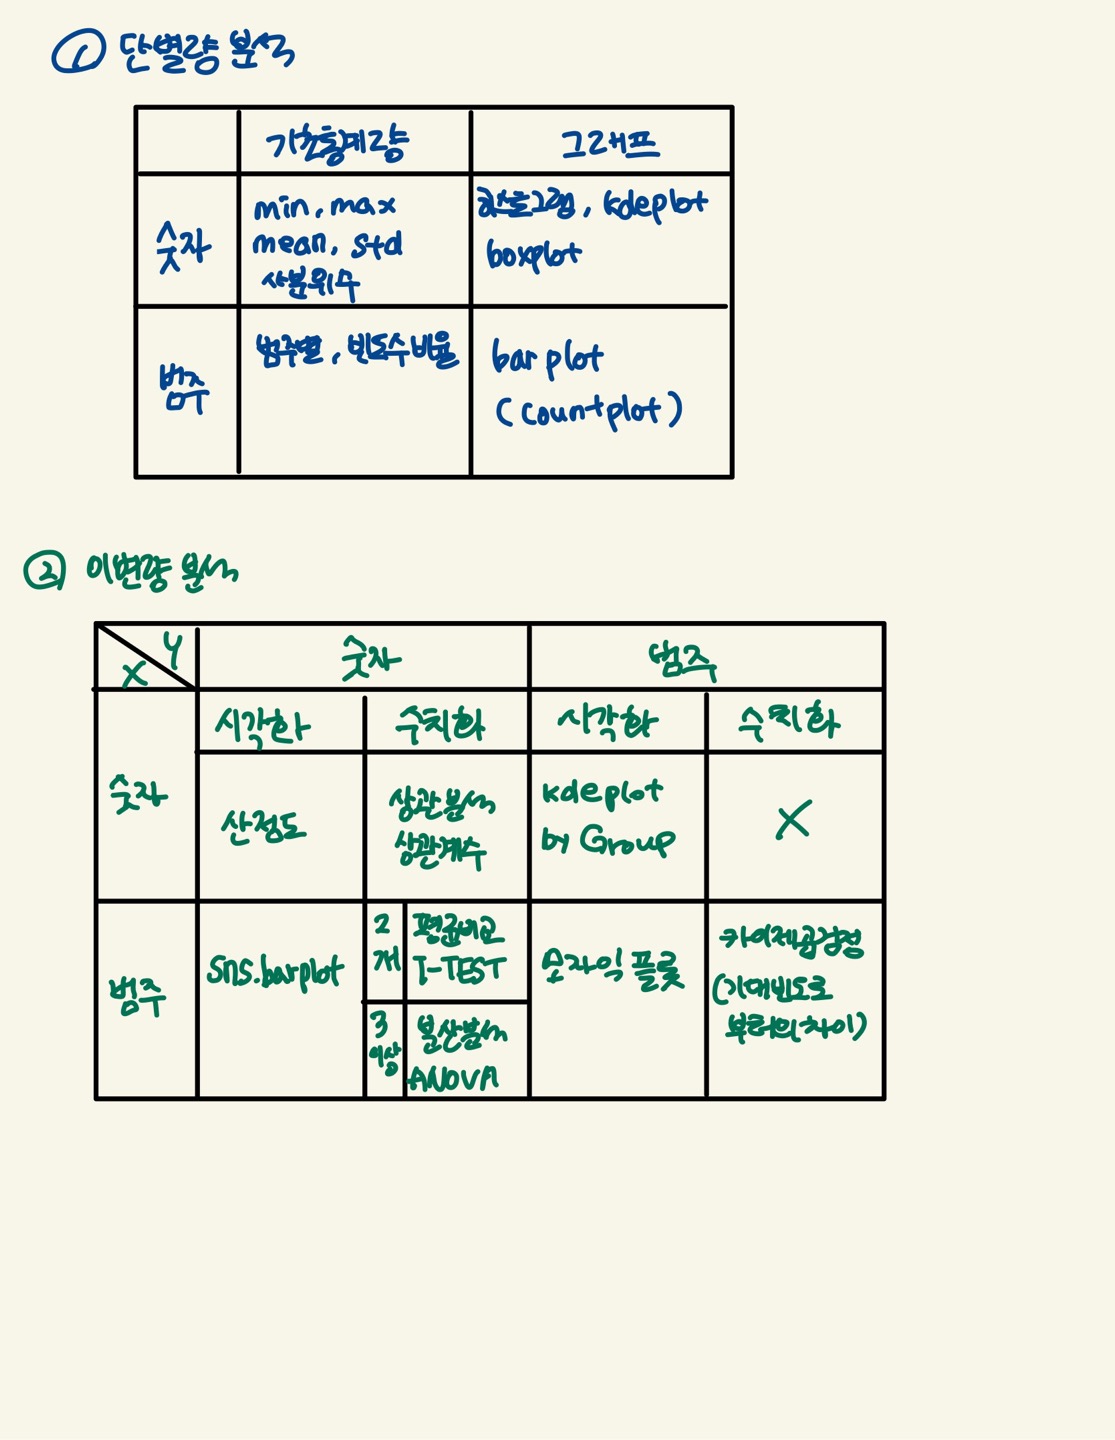 ① 단별량 분석
기초통계량 그래프
숫자
min, max
mean, std
사분위수
히스토그램, kdeplot
boxplot
범주
범주별, 빈도수 비율
bar plot
(countplot)
② 이변량 분석
X Y 숫자 범주
시각화 수치화 시각화 수치화
숫자
산점도
상관분석
상관계수
kdeplot
by Group
X
범주
sns.barplot
2
개
평균비교
T-TEST
3
이상
분산분석
ANOVA
모자익 플롯
카이제곱검정
(기대빈도로
부터의 차이)